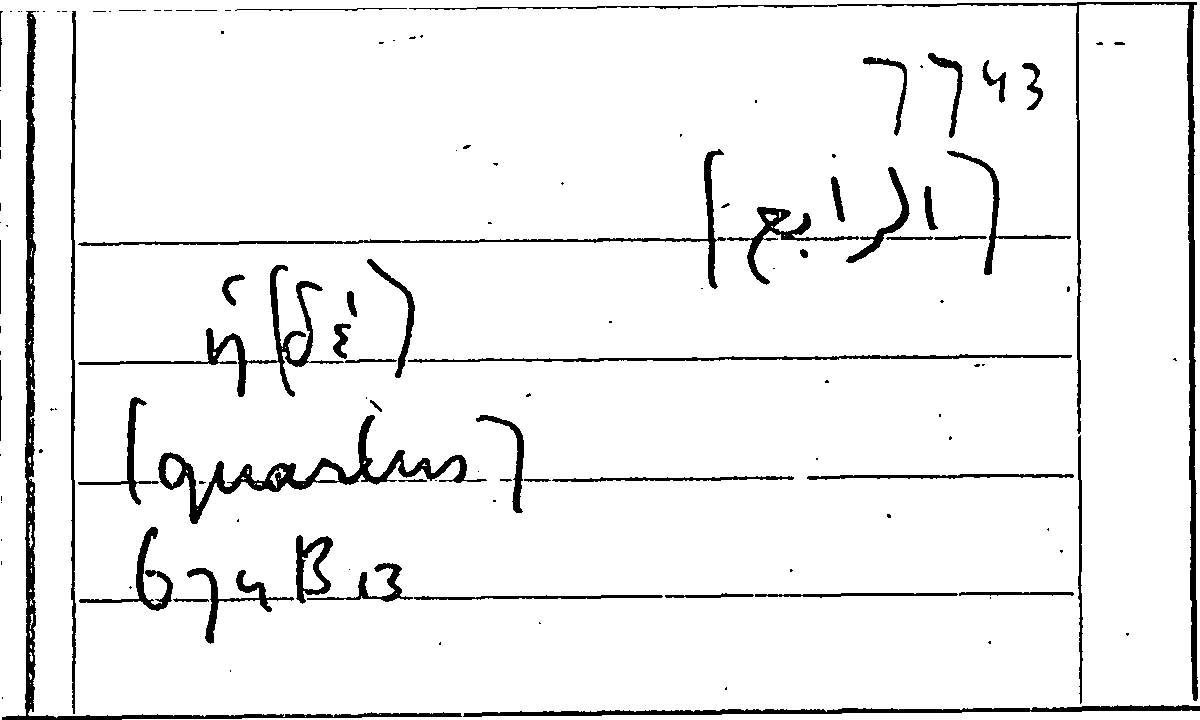 7743
[الرابع]
ἡ (δέ)
[quartus]
674 B 13